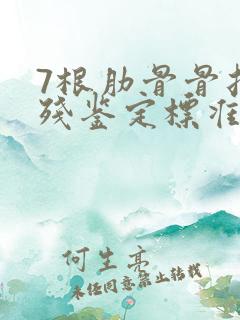 7根肋骨骨
残鉴定标准
何生亮
未经同意禁止转载